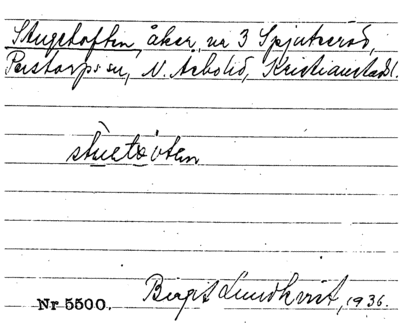 Stugetoften, åker, va 3 Spjutseröd,
Perstorps sn, N. Åsbohd, Kristianstadsl.
stuetåften
Nr 5500. Birgit Lundkvist, 1936.